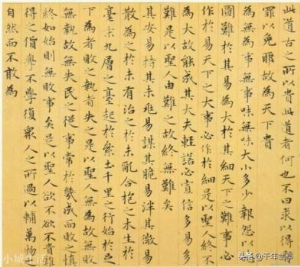 此道古之所以貴此道者何也不曰求以得
罪以免耶故為天下貴
為無為事無事味無味大小多少報怨以
圖難於其易為大於其細天下之難事必
作於易天下之大事必作於細是以聖人終不
為大故能成其大夫輕諾必寡信多易多
難是以聖人由難之故終無難矣
其安易持其未兆易謀其脆易泮其微易
散為之於未有治之於未亂合抱之木生於
毫末九層之臺起於累土千里之行始於足
下為者敗之執者失之是以聖人無為故無敗
無執故無失民之從事常於幾成而敗之慎
終如始則無敗事矣是以聖人欲不欲不貴難
得之貨學不學復眾人之所過以輔萬物之
自然而不敢為